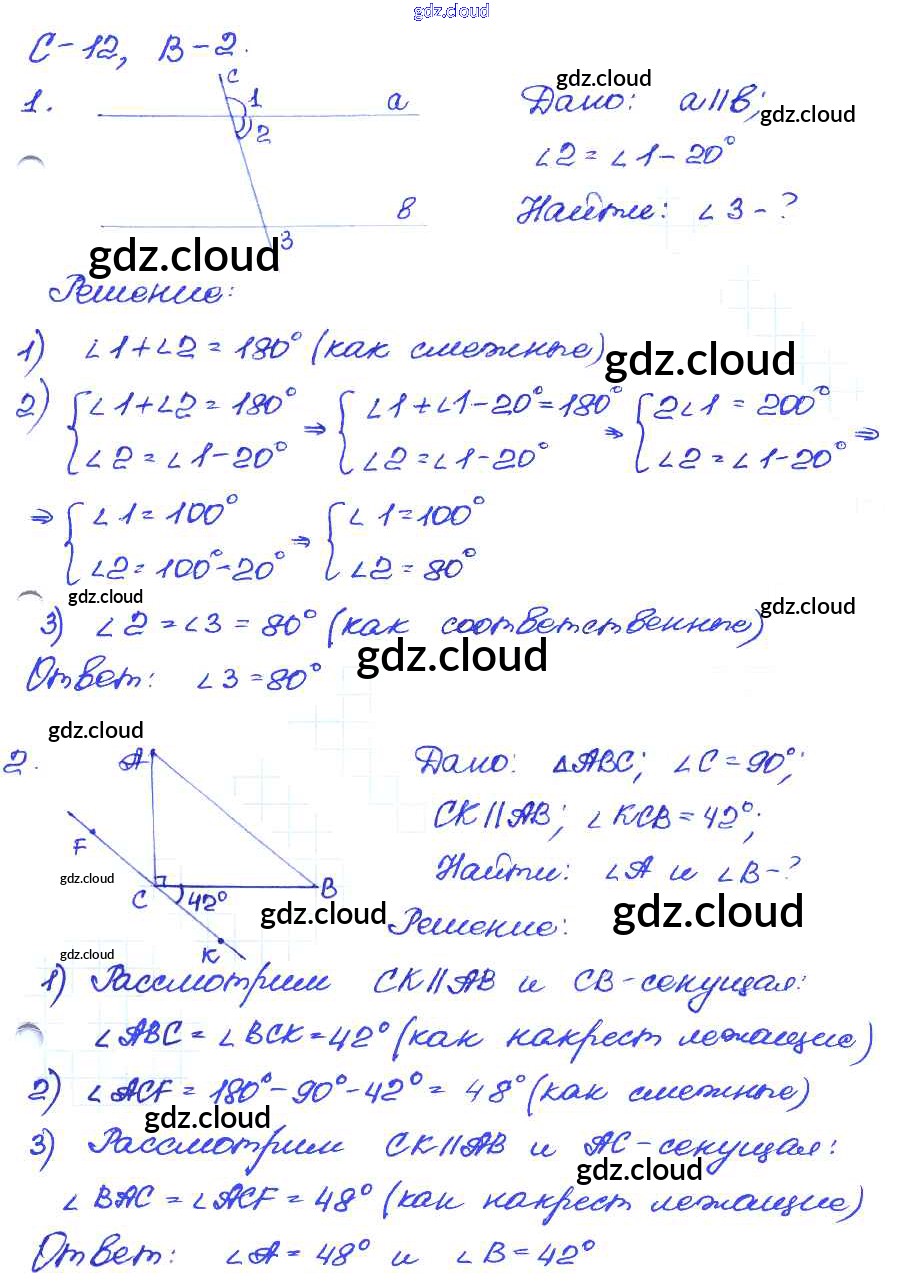 gdz.cloud
С-12, В-2.
1.
c
1
a
2
в
3
Дано: a||в;
∠2 = ∠1 - 20°
Найти: ∠3 - ?
gdz.cloud
gdz.cloud
gdz.cloud
Решение:
1) ∠1 + ∠2 = 180° (как смежные)
gdz.cloud
2) { ∠1 + ∠2 = 180° ⇒ { ∠1 + ∠1 - 20° = 180° ⇒ { 2∠1 = 200°
∠2 = ∠1 - 20° ∠2 = ∠1 - 20° ∠2 = ∠1 - 20° ⇒
⇒ { ∠1 = 100° ⇒ { ∠1 = 100°
∠2 = 100° - 20° ∠2 = 80°
gdz.cloud
gdz.cloud
3) ∠2 = ∠3 = 80° (как соответственные)
gdz.cloud
Ответ: ∠3 = 80°
gdz.cloud
2.
A
F
C
42°
B
K
gdz.cloud
gdz.cloud
Дано: △ABC; ∠C = 90°;
CK || AB; ∠KCB = 42°;
Найти: ∠A и ∠B - ?
gdz.cloud
Решение:
gdz.cloud
1) Рассмотрим CK || AB и CB - секущая:
∠ABC = ∠BCK = 42° (как накрест лежащие)
2) ∠ACF = 180° - 90° - 42° = 48° (как смежные)
gdz.cloud
3) Рассмотрим CK || AB и AC - секущая:
gdz.cloud
∠BAC = ∠ACF = 48° (как накрест лежащие)
Ответ: ∠A = 48° и ∠B = 42°